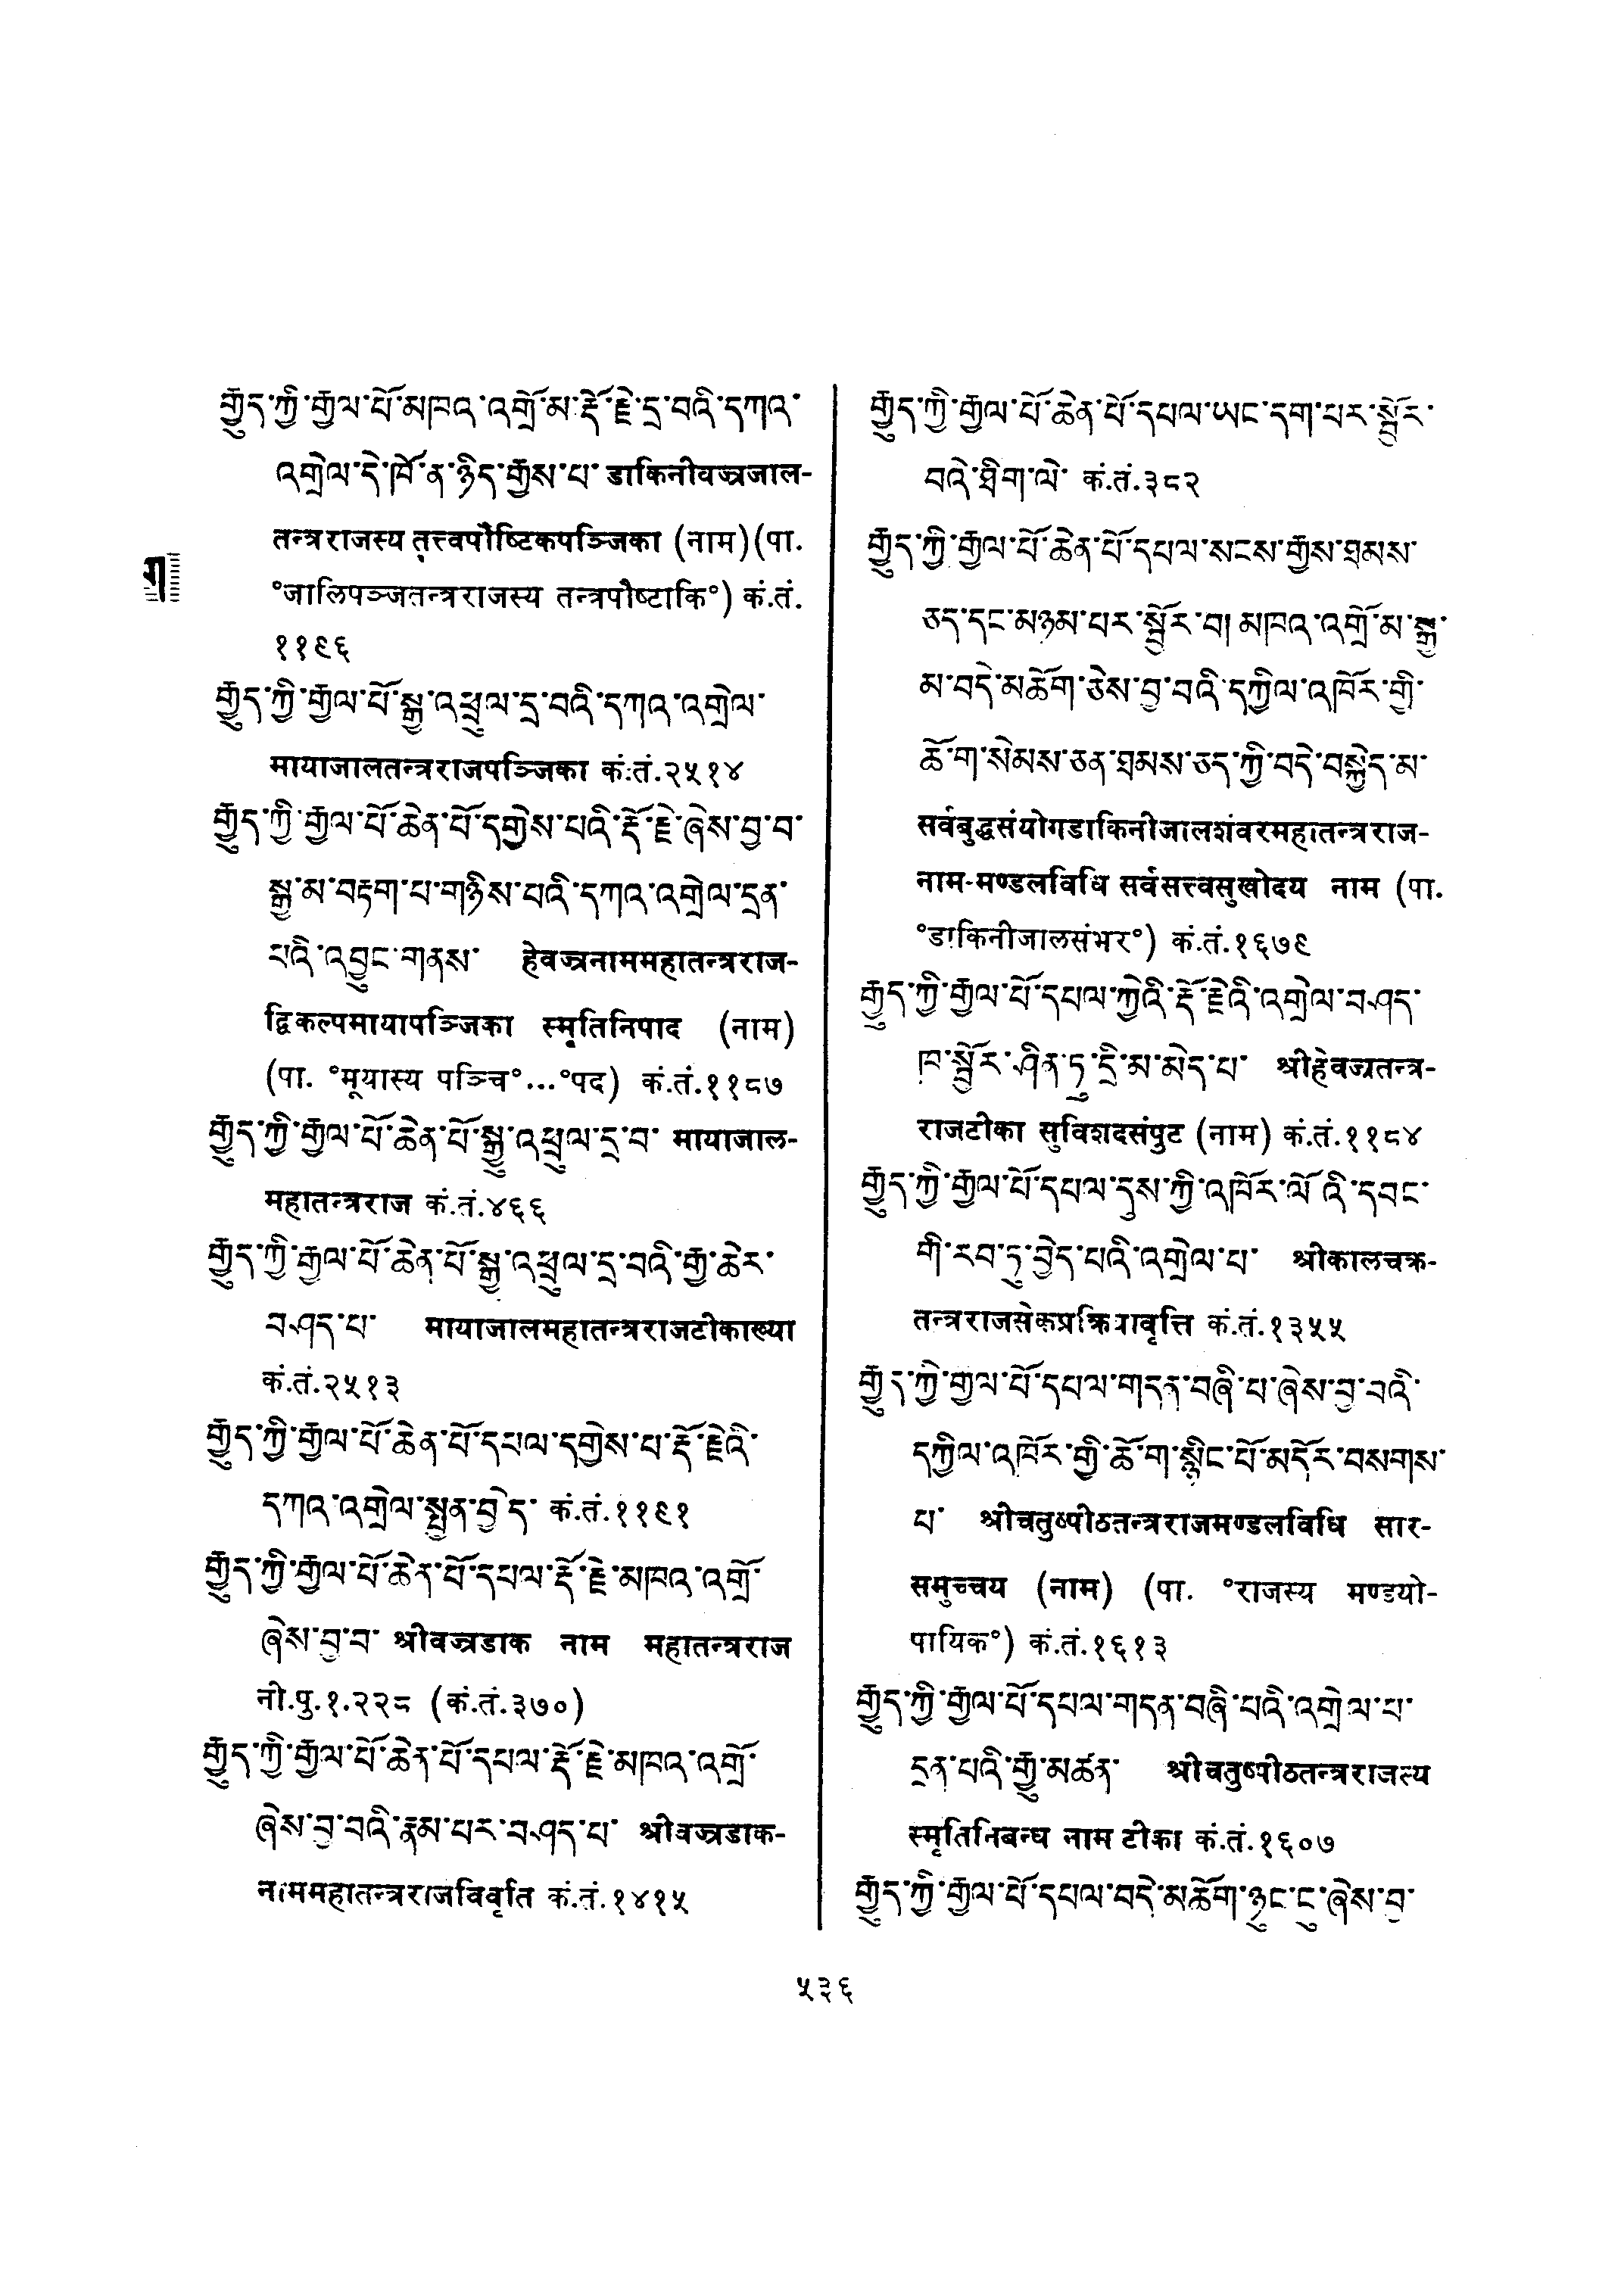 རྒྱུད་ཀྱི་རྒྱལ་པོ་མཁའ་འགྲོ་མ་རྡོ་རྗེ་དྲ་བའི་དཀའ་
འགྲེལ་དེ་ཁོ་ན་ཉིད་རྒྱས་པ་ डाकिनीवज्रजाल-
तन्त्रराजस्य तत्त्वपौष्टिकपञ्जिका (नाम)(पा.
°जालिपञ्जतन्त्रराजस्य तन्त्रपौष्टाकि°) कं.तं.
११९६
རྒྱུད་ཀྱི་རྒྱལ་པོ་སྒྱུ་འཕྲུལ་དྲ་བའི་དཀའ་འགྲེལ་
मायाजालतन्त्रराजपञ्जिका कं.तं.२५१४
རྒྱུད་ཀྱི་རྒྱལ་པོ་ཆེན་པོ་དགྱེས་པའི་རྡོ་རྗེ་ཞེས་བྱ་བ་
སྒྱུ་མ་བརྟག་པ་གཉིས་པའི་དཀའ་འགྲེལ་དྲན་
པའི་འབྱུང་གནས་ हेवज्रनाममहातन्त्रराज-
द्विकल्पमायापञ्जिका स्मृतिनिपाद (नाम)
(पा. °मूयास्य पञ्चि°...°पद) कं.तं.११८७
རྒྱུད་ཀྱི་རྒྱལ་པོ་ཆེན་པོ་སྒྱུ་འཕྲུལ་དྲ་བ་ मायाजाल-
महातन्त्रराज कं.तं.४६६
རྒྱུད་ཀྱི་རྒྱལ་པོ་ཆེན་པོ་སྒྱུ་འཕྲུལ་དྲ་བའི་རྒྱ་ཆེར་
བཤད་པ་ मायाजालमहातन्त्रराजटीकाख्या
कं.तं.२५१३
རྒྱུད་ཀྱི་རྒྱལ་པོ་ཆེན་པོ་དཔལ་དགྱེས་པ་རྡོ་རྗེའི་
དཀའ་འགྲེལ་སྤྱན་བྱེད་ कं.तं.११९१
རྒྱུད་ཀྱི་རྒྱལ་པོ་ཆེན་པོ་དཔལ་རྡོ་རྗེ་མཁའ་འགྲོ་
ཞེས་བྱ་བ་ श्रीवज्रडाक नाम महातन्त्रराज
नी.पु.१.२२८ (कं.तं.३७०)
རྒྱུད་ཀྱི་རྒྱལ་པོ་ཆེན་པོ་དཔལ་རྡོ་རྗེ་མཁའ་འགྲོ་
ཞེས་བྱ་བའི་རྣམ་པར་བཤད་པ་ श्रीवज्रडाक-
नाममहातन्त्रराजविवृति कं.तं.१४१५
རྒྱུད་ཀྱི་རྒྱལ་པོ་ཆེན་པོ་དཔལ་ཡང་དག་པར་སྦྱོར་
བའི་ཐིག་ལེ་ कं.तं.३८२
རྒྱུད་ཀྱི་རྒྱལ་པོ་ཆེན་པོ་དཔལ་སངས་རྒྱས་ཐམས་
ཅད་དང་མཉམ་པར་སྦྱོར་བ། མཁའ་འགྲོ་མ་སྒྱུ་
མ་བདེ་མཆོག་ཅེས་བྱ་བའི་དཀྱིལ་འཁོར་གྱི་
ཆོ་ག་སེམས་ཅན་ཐམས་ཅད་ཀྱི་བདེ་བསྐྱེད་མ་
सर्वबुद्धसंयोगडाकिनीजालशंवरमहातन्त्रराज-
नाम-मण्डलविधि सर्वसत्त्वसुखोदय नाम (पा.
°डाकिनीजालसंभर°) कं.तं.१६७९
རྒྱུད་ཀྱི་རྒྱལ་པོ་དཔལ་ཀྱེའི་རྡོ་རྗེའི་འགྲེལ་བཤད་
ཁ་སྦྱོར་ཤིན་ཏུ་དྲི་མ་མེད་པ་ श्रीहेवज्रतन्त्र-
राजटीका सुविशदसंपुट (नाम) कं.तं.११८४
རྒྱུད་ཀྱི་རྒྱལ་པོ་དཔལ་དུས་ཀྱི་འཁོར་ལོའི་དབང་
གི་རབ་ཏུ་བྱེད་པའི་འགྲེལ་པ་ श्रीकालचक्र-
तन्त्रराजसेकप्रक्रियावृत्ति कं.तं.१३५५
རྒྱུད་ཀྱི་རྒྱལ་པོ་དཔལ་གདན་བཞི་པ་ཞེས་བྱ་བའི་
དཀྱིལ་འཁོར་གྱི་ཆོ་ག་སྙིང་པོ་མདོར་བསགས་
པ་ श्रीचतुष्पीठतन्त्रराजमण्डलविधि सार-
समुच्चय (नाम) (पा. °राजस्य मण्डयो-
पायिक°) कं.तं.१६१३
རྒྱུད་ཀྱི་རྒྱལ་པོ་དཔལ་གདན་བཞི་པའི་འགྲེལ་པ་
དྲན་པའི་རྒྱུ་མཚན་ श्रीचतुष्पीठतन्त्रराजस्य
स्मृतिनिबन्ध नाम टीका कं.तं.१६०७
རྒྱུད་ཀྱི་རྒྱལ་པོ་དཔལ་བདེ་མཆོག་ཉུང་ངུ་ཞེས་བྱ་
५३६